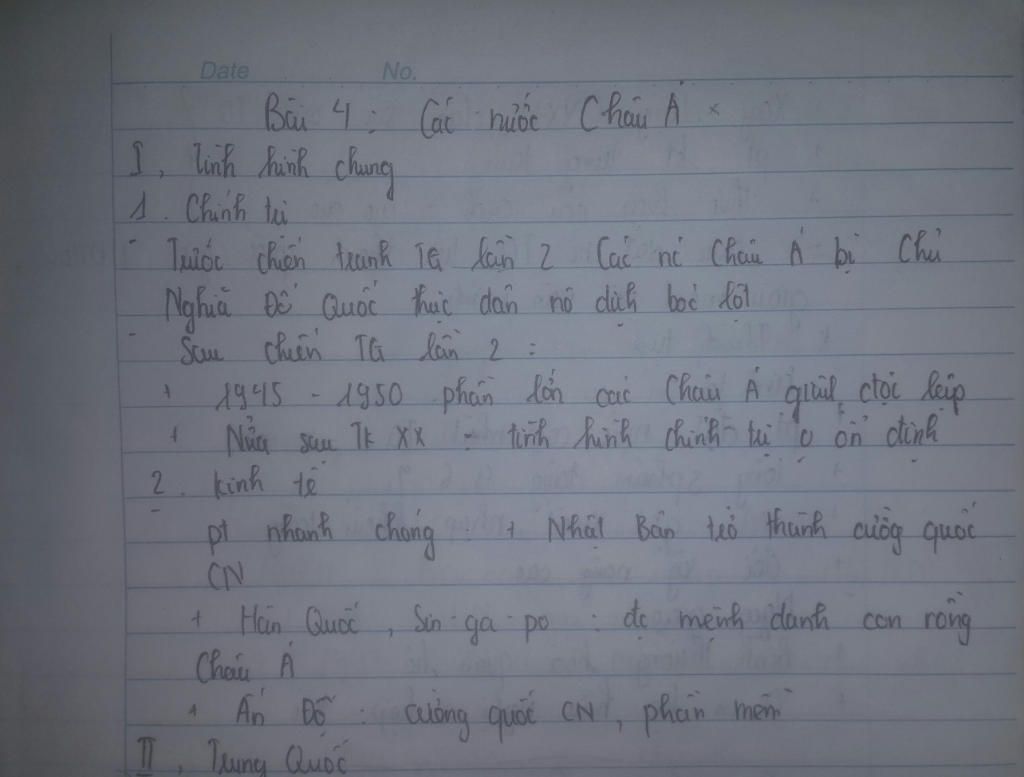 Date No.
Bài 4 : Các nước Châu Á ×
I, Tình hình chung
1. Chính trị
- Trước chiến tranh TG lần 2 Các nc Châu Á bị Chủ
Nghĩa Đế Quốc thực dân nô dịch bóc lột
- Sau chiến TG lần 2 :
+ 1945 - 1950 phần lớn các Châu Á giành độc lập
+ Nửa sau TK XX : tình hình chính trị o ổn định
2. kinh tế
- pt nhanh chóng : + Nhật Bản trở thành cường quốc
CN
+ Hàn Quốc, Sin-ga-po : đc mệnh danh con rồng
Châu Á
+ Ấn Độ : cường quốc CN, phần mềm
II, Trung Quốc